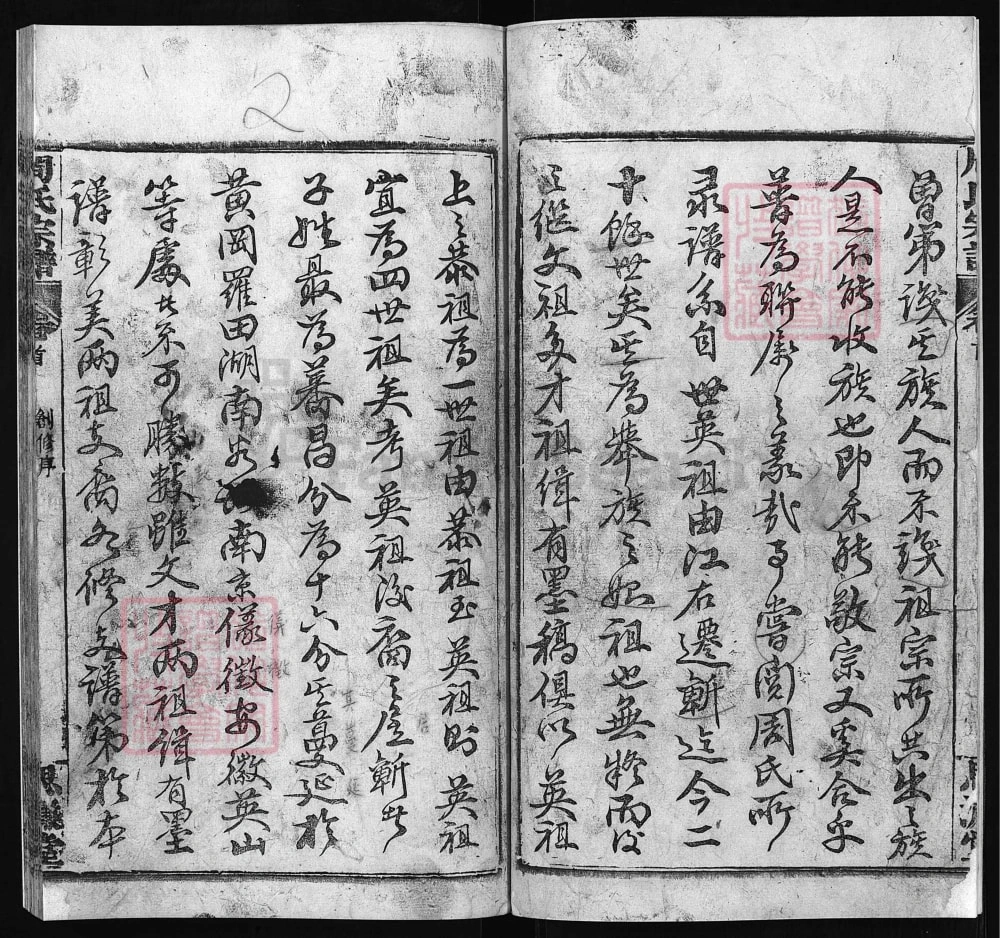 曾第譏其族人而不譏祖宗所共出之族
人是不能收族也即不能敬宗又奚合乎
普為聯屬之義哉予嘗閱周氏所
錄譜系自 世英祖由江右遷蘄迄今二
十餘世矣其為舉族之始祖也無疑而後
之繼文祖多才祖緝有墨稿俱以 英祖
上之恭祖為一世祖由恭祖至 英祖則 英祖
宜為四世祖矣考英祖後裔之居蘄者
子姓最為蕃昌分為十六分其蔓延於
黃岡羅田湖南 南京儀徵安徽英山
等處者不可勝數雖文才兩祖緝有墨
譜彰美兩祖支裔各修支譜第於本
周氏宗譜
卷首
創修序
2